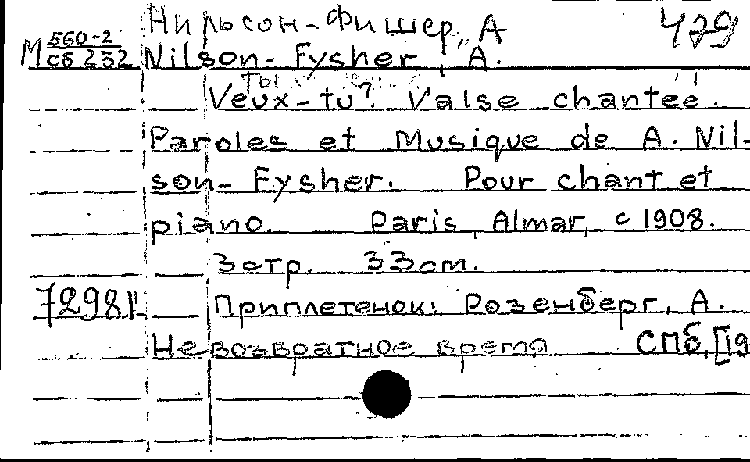 Нильсон-Фишер, А 479
М 560-2
сб 232 Nilson-Fysher, A.
Ты
Veux-tu? Valse chantée.
Paroles et Musique de A. Nil-
son-Fysher. Pour chant et
piano. Paris, Almar, c 1908.
3 стр. 33 cm.
7298 Приплетенок: Розенберг, А.
Невозвратное время СПб, [19